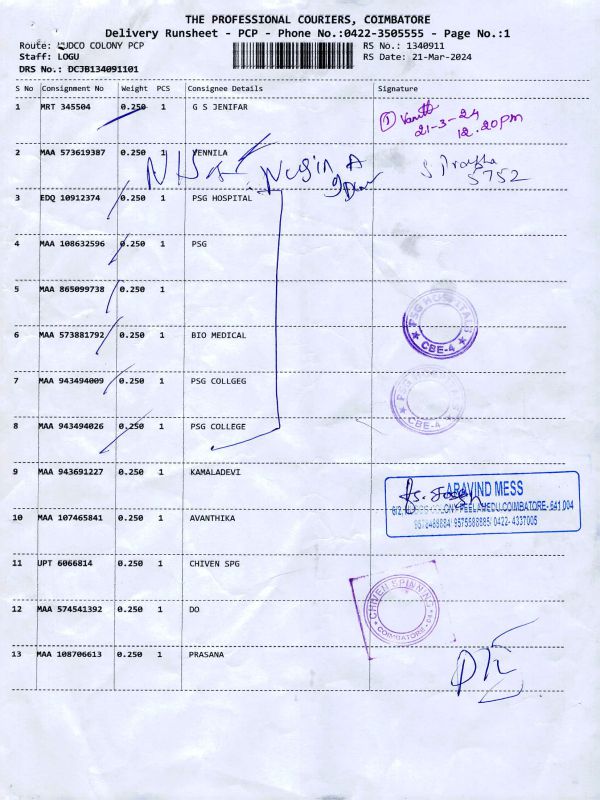 THE PROFESSIONAL COURIERS, COIMBATORE
Delivery Runsheet - PCP - Phone No.:0422-3505555 - Page No.:1
Route: HUDCO COLONY PCP
RS No.: 1340911
Staff: LOGU
RS Date: 21-Mar-2024
DRS No.: DCJB134091101
S No Consignment No Weight PCS Consignee Details Signature
1 MRT 345504 0.250 1 G S JENIFAR
21-3-24
12.20pm
2 MAA 573619387 0.250 1 VENNILA
5752
3 EDQ 10912374 0.250 1 PSG HOSPITAL
4 MAA 108632596 0.250 1 PSG
5 MAA 865099738 0.250 1
PSG HOSPITALS
CBE-4
6 MAA 573881792 0.250 1 BIO MEDICAL
7 MAA 943494009 0.250 1 PSG COLLGEG
PSG HOSPITALS
CBE-4
8 MAA 943494026 0.250 1 PSG COLLEGE
9 MAA 943691227 0.250 1 KAMALADEVI
ARAVIND MESS
COLONY PEELAMEDU, COIMBATORE- 641 004
0422- 4337005
10 MAA 107465841 0.250 1 AVANTHIKA
11 UPT 6066814 0.250 1 CHIVEN SPG
CHIVEN SPINNING
COIMBATORE
12 MAA 574541392 0.250 1 DO
13 MAA 108706613 0.250 1 PRASANA